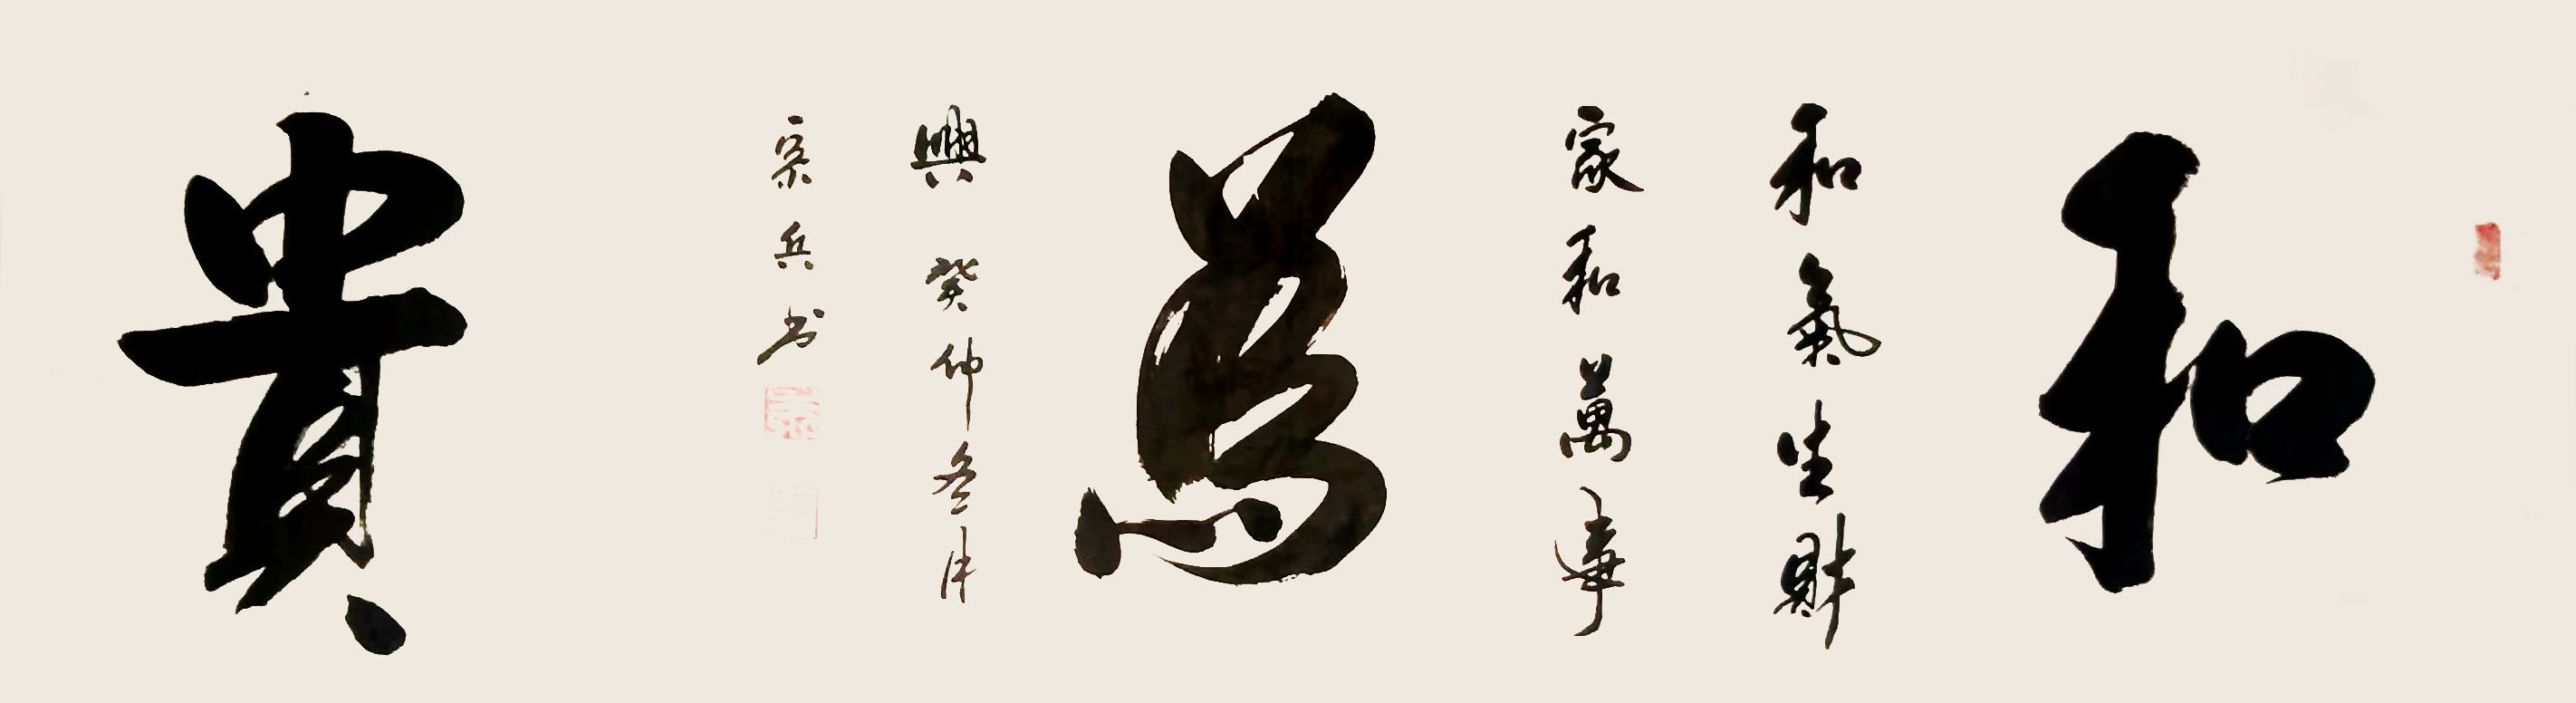 和
和氣生財
家和萬事
為
興 癸卯冬月
宗兵书
貴